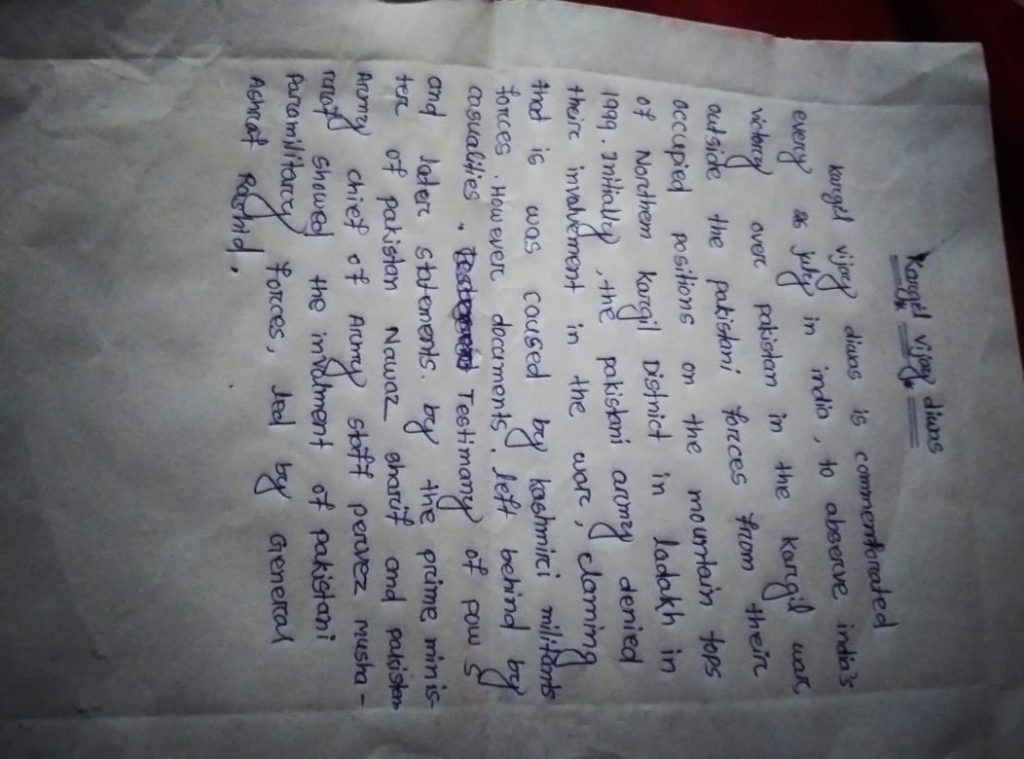 Kargil vijay diwas
kargil vijay diwas is commemorated
every 26 july in india, to observe india's
victory over pakistan in the kargil war,
outside the pakistani forces from their
occupied positions on the mountain tops
of Northem kargil District in ladakh in
1999. Initially, the pakistani army denied
their involvement in the war, claming
that is was caused by kashmiri militants
forces. However documents left behind by
casualities. Testimany of pow s
and later statements. by the prime minis-
ter of pakistan Nawaz sharif and pakistan
Army chief of Army staff pervez musha-
raraf showed the invulment of pakistani
Paramilitary forces, led by General
Ashraf Rashid.